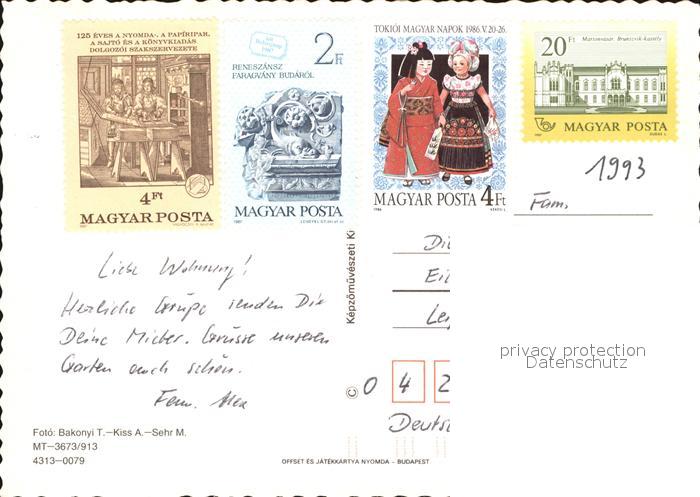 125 ÉVES A NYOMDA-, A PAPÍRIPAR,
A SAJTÓ ÉS A KÖNYVKIADÁS
DOLGOZÓI SZAKSZERVEZETE
4Ft
MAGYAR POSTA
1987
2Ft
RENESZÁNSZ
FARAGVÁNY BUDÁRÓL
MAGYAR POSTA
1987
TOKIÓI MAGYAR NAPOK 1986.V.20-26.
MAGYAR POSTA 4Ft
1986
20Ft
Martonvásár, Brunszvik-kastély
MAGYAR POSTA
1993
Fam.
Liebe Wohnung!
Herzliche Grüße senden Dir
Deine Mieter. Grüsse unseren
Garten auch schön.
Fam.
Képzőművészeti Ki
Ei
Le
© 0 4 2
Deuts
privacy protection
Datenschutz
Fotó: Bakonyi T.—Kiss A.—Sehr M.
MT—3673/913
4313—0079
OFFSET ÉS JÁTÉKKÁRTYA NYOMDA - BUDAPEST